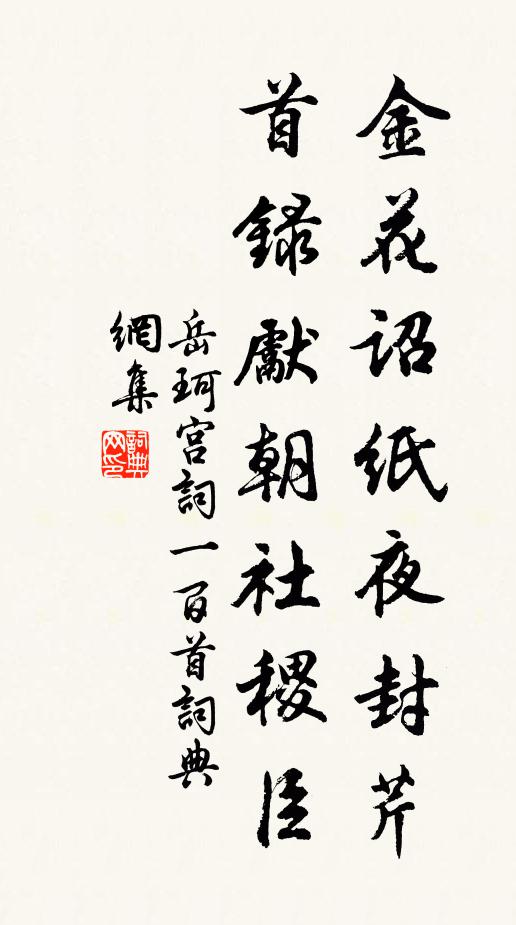 金花詔紙夜封芹
首録獻朝社稷臣
岳珂宮詞一百首詞典
網集
詞典網印